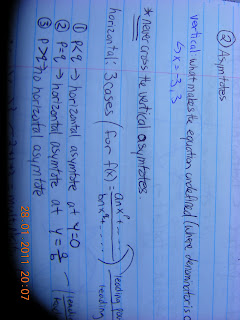 ② Asymptotes
vertical: what makes the equation undefined (where denominator is
↳ x = -3, 3
* never cross the vertical asymptotes
horizontal: 3 cases (for f(x) = axᵖ...... / bxq......) leading
leading
① P<q → horizontal asymptote at y=0
② P=q → horizontal asymptote at y = a/b
③ P>q no horizontal asymptote
28.01.2011 20:07